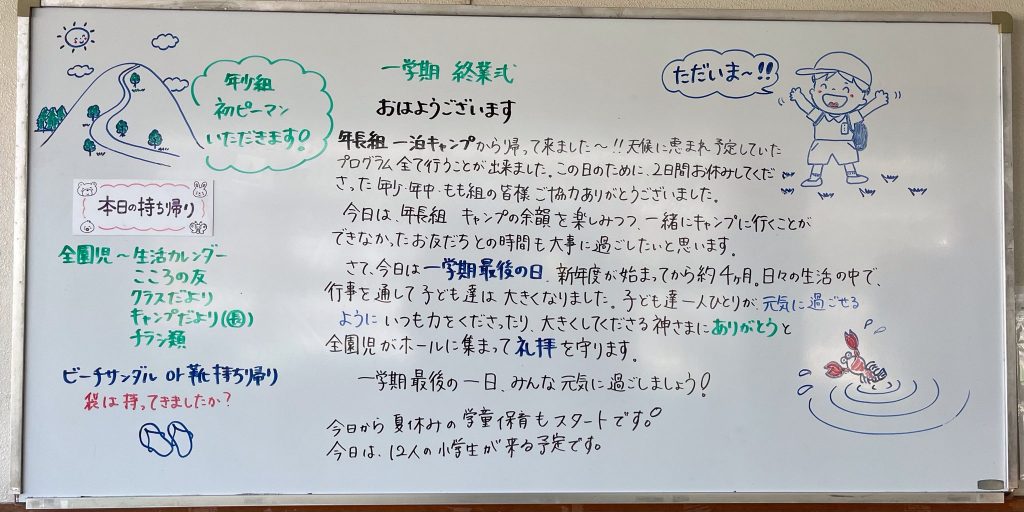 一学期 終業式
おはようございます
年長組 一泊キャンプから帰って来ました〜!!天候に恵まれ予定していた
プログラム全て行うことが出来ました。この日のために、2日間お休みしてくだ
さった年少・年中・もも組の皆様ご協力ありがとうございました。
今日は、年長組 キャンプの余韻を楽しみつつ、一緒にキャンプに行くことが
できなかったお友だちとの時間も大事に過ごしたいと思います。
さて、今日は一学期最後の日。新年度が始まってから約4ヵ月。日々の生活の中で、
行事を通して子ども達は大きくなりました。子ども達一人ひとりが元気に過ごせる
ようにいつも力をくださったり、大きくしてくださる神さまにありがとうと
全園児がホールに集まって礼拝を守ります。
一学期最後の一日、みんな元気に過ごしましょう!
今日から夏休みの学童保育もスタートです。
今日は、12人の小学生が来る予定です。
年少組
初ピーマン
いただきます!
本日の持ち帰り
全園児〜生活カレンダー
こころの友
クラスだより
キャンプだより(長)
チラシ類
ビーチサンダル or 靴持ち帰り
袋は持ってきましたか?
ただいま〜!!